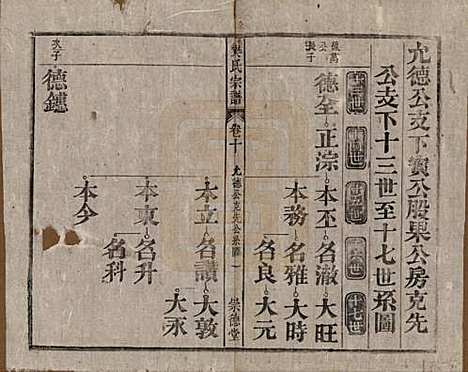 允德公支下寶公股果公房克先
公支下十三世至十七世系圖
十三世
十四世
十五世
十六世
十七世
長子
德全
正淙
本丕
名澈
大旺
本務
名雅
大時
名良
大元
本立
名讚
大敦
大永
本東
名升
名科
本今
氏宗譜
卷十
允德公克先公系圖
崇德堂
次子
德鑪